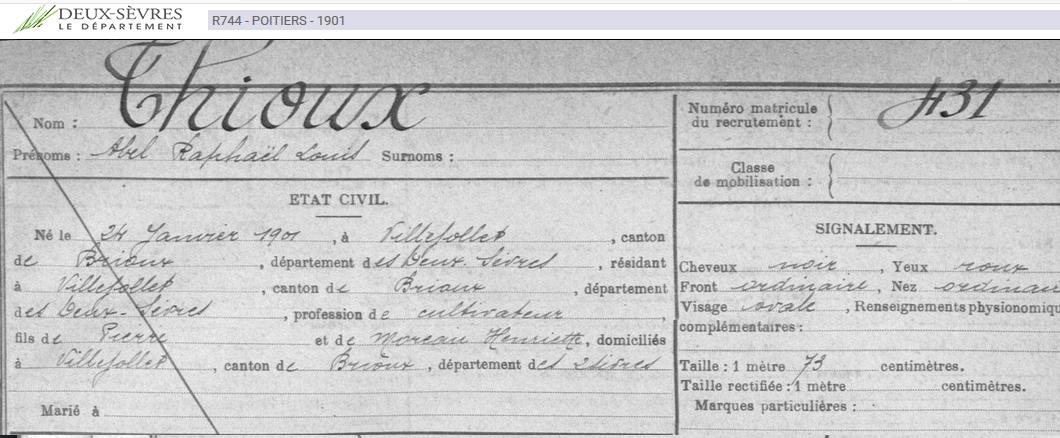 DEUX-SÈVRES
LE DÉPARTEMENT
R744 - POITIERS - 1901
Nom : Thioux
Prénoms : Abel Raphaël Louis Surnoms :
ETAT CIVIL.
Né le 24 Janvier 1901, à Villefollet, canton
de Brioux, département des Deux-Sèvres, résidant
à Villefollet, canton de Brioux, département
des Deux-Sèvres, profession de cultivateur,
fils de Pierre et de Moreau Henriette, domiciliés
à Villefollet, canton de Brioux, département des 2 Sèvres
Marié à
Numéro matricule
du recrutement : 431
Classe
de mobilisation :
SIGNALEMENT.
Cheveux noir, Yeux roux
Front ordinaire, Nez ordinai
Visage ovale, Renseignements physionomiqu
complémentaires :
Taille : 1 mètre 73 centimètres.
Taille rectifiée : 1 mètre centimètres.
Marques particulières :